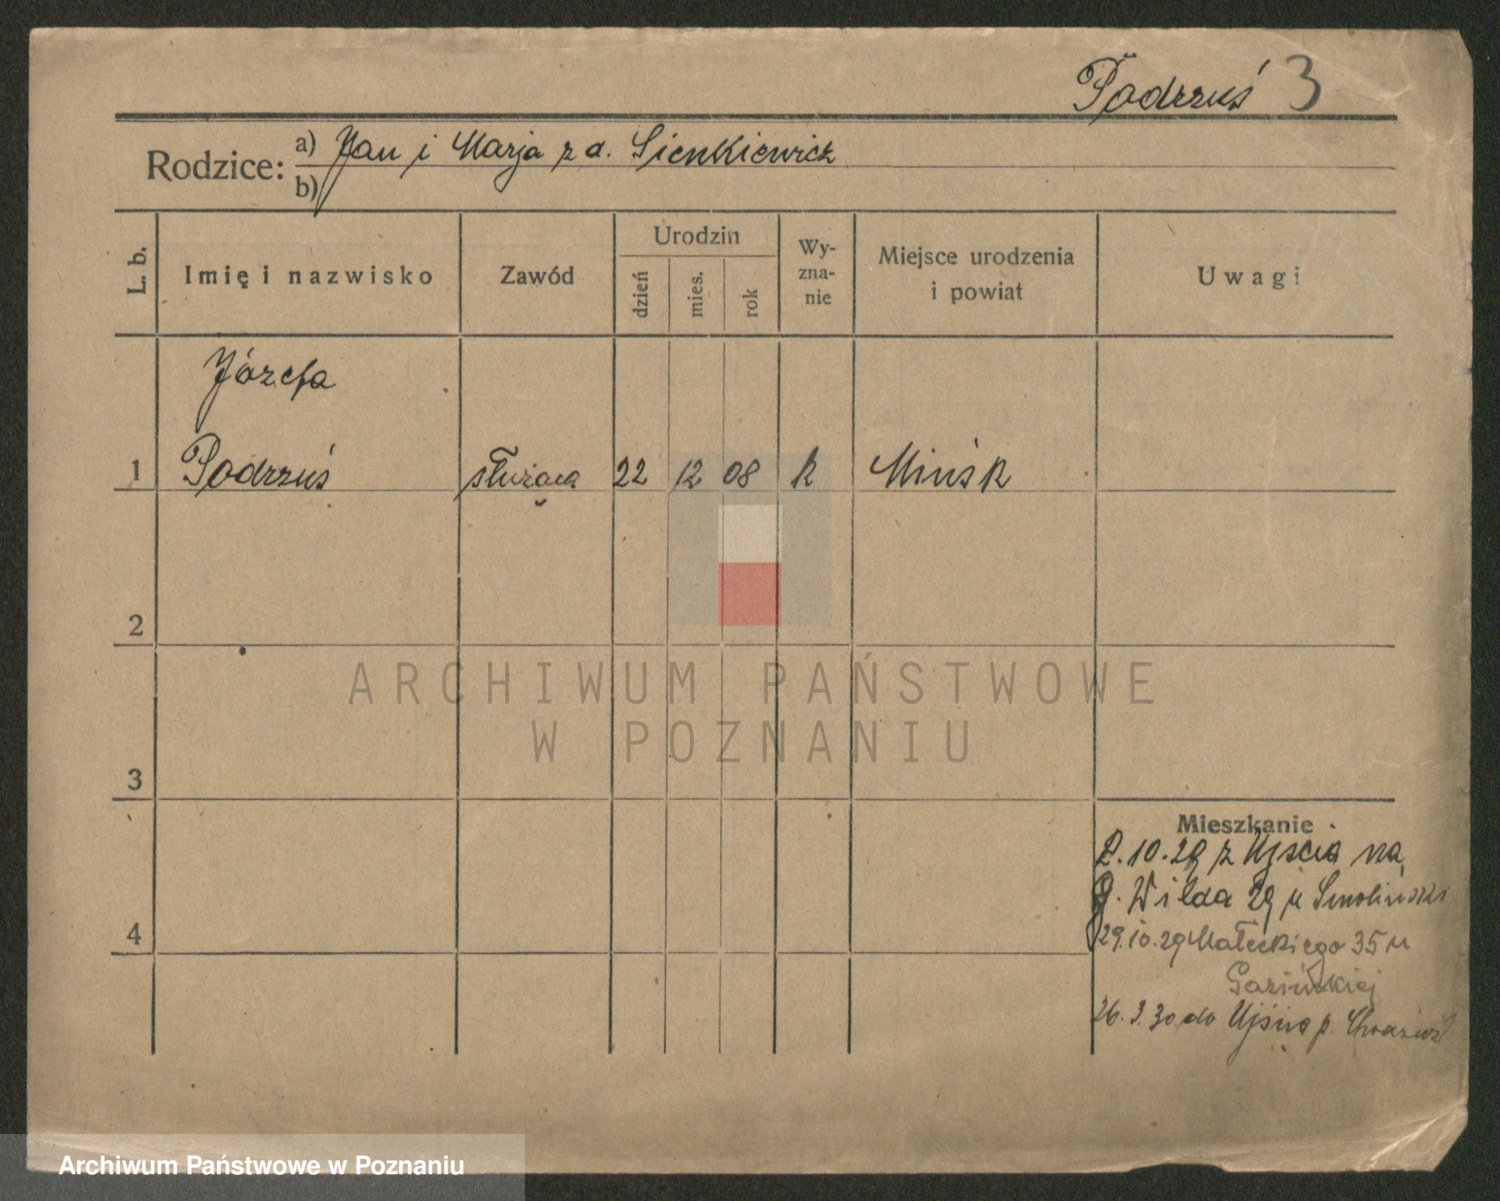 Podrzuś 3
Rodzice: a) Jan i Marja z d. Sienkiewicz
b)
L. b.
Imię i nazwisko
Zawód
Urodzin
dzień
mies.
rok
Wy-
zna-
nie
Miejsce urodzenia
i powiat
Uwagi
Józefa
1 Podrzuś służąca 22 12 08 k Mińsk
2
3
4
Mieszkanie
2.10.29 z Ujścia na
G. Wilda 29 u Smoliński
29.10.29 Małeckiego 35 u
26.3.30 do
ARCHIWUM PAŃSTWOWE
W POZNANIU
Archiwum Państwowe w Poznaniu